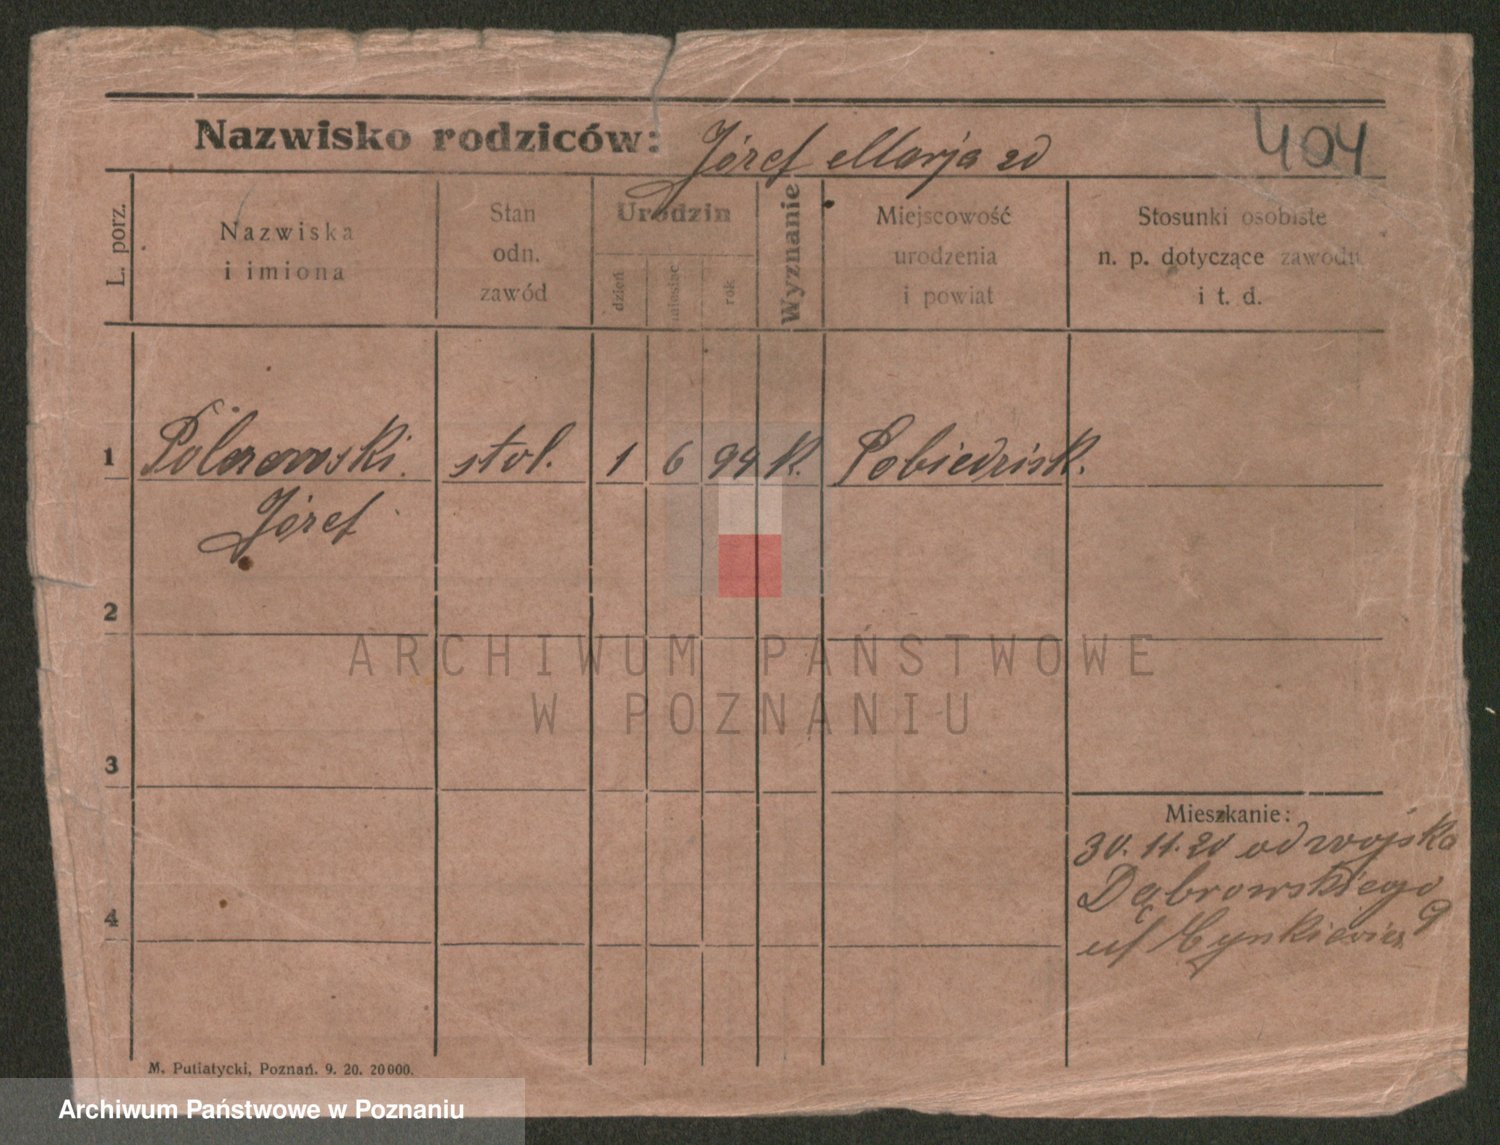 Nazwisko rodziców: Józef Marja zd
404
L. porz.
Nazwiska
i imiona
Stan
odn.
zawód
Urodzin
dzień
miesiąc
rok
Wyznanie
Miejscowość
urodzenia
i powiat
Stosunki osobiste
n. p. dotyczące zawodu
i t. d.
1 stol. 1 6 94 k. Pobiedzisk.
Józef
2
ARCHIWUM PAŃSTWOWE
W POZNANIU
3
Mieszkanie:
30.11.20 od wojska
Dąbrowskiego
4
9
M. Putiatycki, Poznań. 9. 20. 20000.
Archiwum Państwowe w Poznaniu